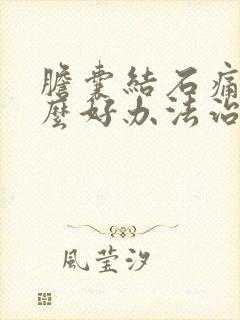 膽囊結石痛
麼好办法治
風莹汐